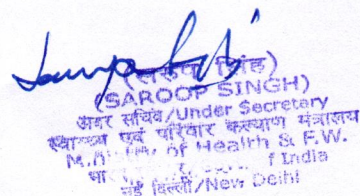 (सरूप सिंह)
(SAROOP SINGH)
अवर सचिव/Under Secretary
स्वास्थ्य एवं परिवार कल्याण मंत्रालय
of Health & F.W.
भा f India
नई दिल्ली/New Delhi